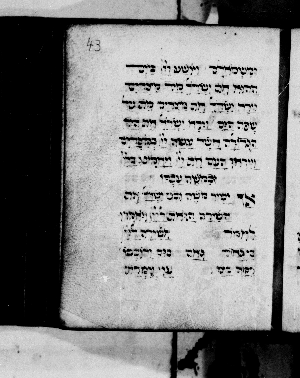 43
ומשמאלם ויושע יי ביום
ההוא את ישראל מיד מצרים
וירא ישראל את מצרים מת על
שפת הים וירא ישראל את היד
הגדולה אשר עשה יי במצרים
וייראו העם את יי ויאמינו ביי
ובמשה עבדו
אז ישיר משה ובני ישראל את
השירה הזאת ליי ויאמרו
לאמר אשירה ליי
כי גאה גאה סוס ורכבו
רמה בים עזי וזמרת